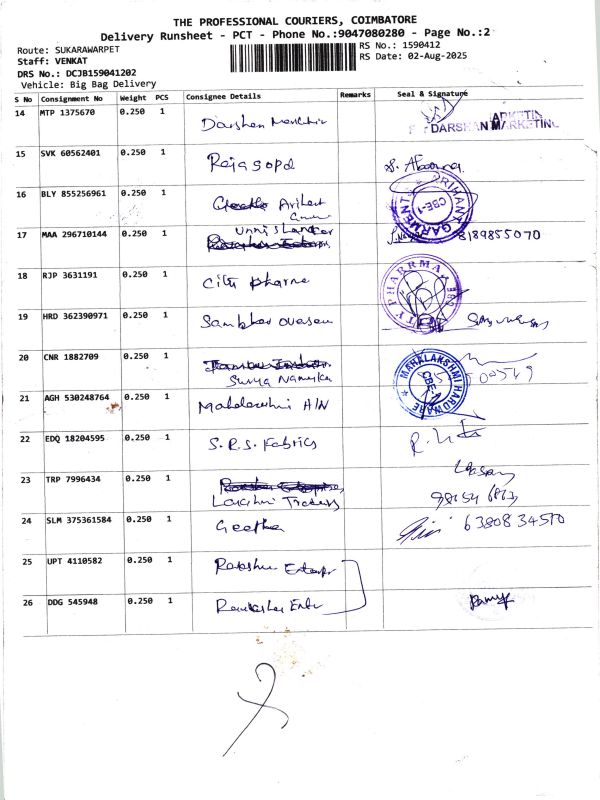 THE PROFESSIONAL COURIERS, COIMBATORE
Delivery Runsheet - PCT - Phone No.:9047080280 - Page No.:2
Route: SUKARAWARPET
RS No.: 1590412
Staff: VENKAT
RS Date: 02-Aug-2025
DRS No.: DCJB159041202
Vehicle: Big Bag Delivery
S No Consignment No Weight PCS Consignee Details Remarks Seal & Signature
14 MTP 1375670 0.250 1 Darshan
DARSHAN MARKETING
15 SVK 60562401 0.250 1 Rajagopal
16 BLY 855256961 0.250 1 Arihant
ARIHANT GARMENT CBE-1
17 MAA 296710144 0.250 1 Unnishankar
8189855070
18 RJP 3631191 0.250 1 City Pharma
CITY PHARRMAA
19 HRD 362390971 0.250 1 Sambhav
20 CNR 1882709 0.250 1
Surya
MAHALAKSHMI HARDWARE CBE-1
21 AGH 530248764 0.250 1 H/W
22 EDQ 18204595 0.250 1 S.R.S. Fabrics
23 TRP 7996434 0.250 1
Lakshmi Traders
24 SLM 375361584 0.250 1 Geetha
63808 34570
25 UPT 4110582 0.250 1
26 DDG 545948 0.250 1